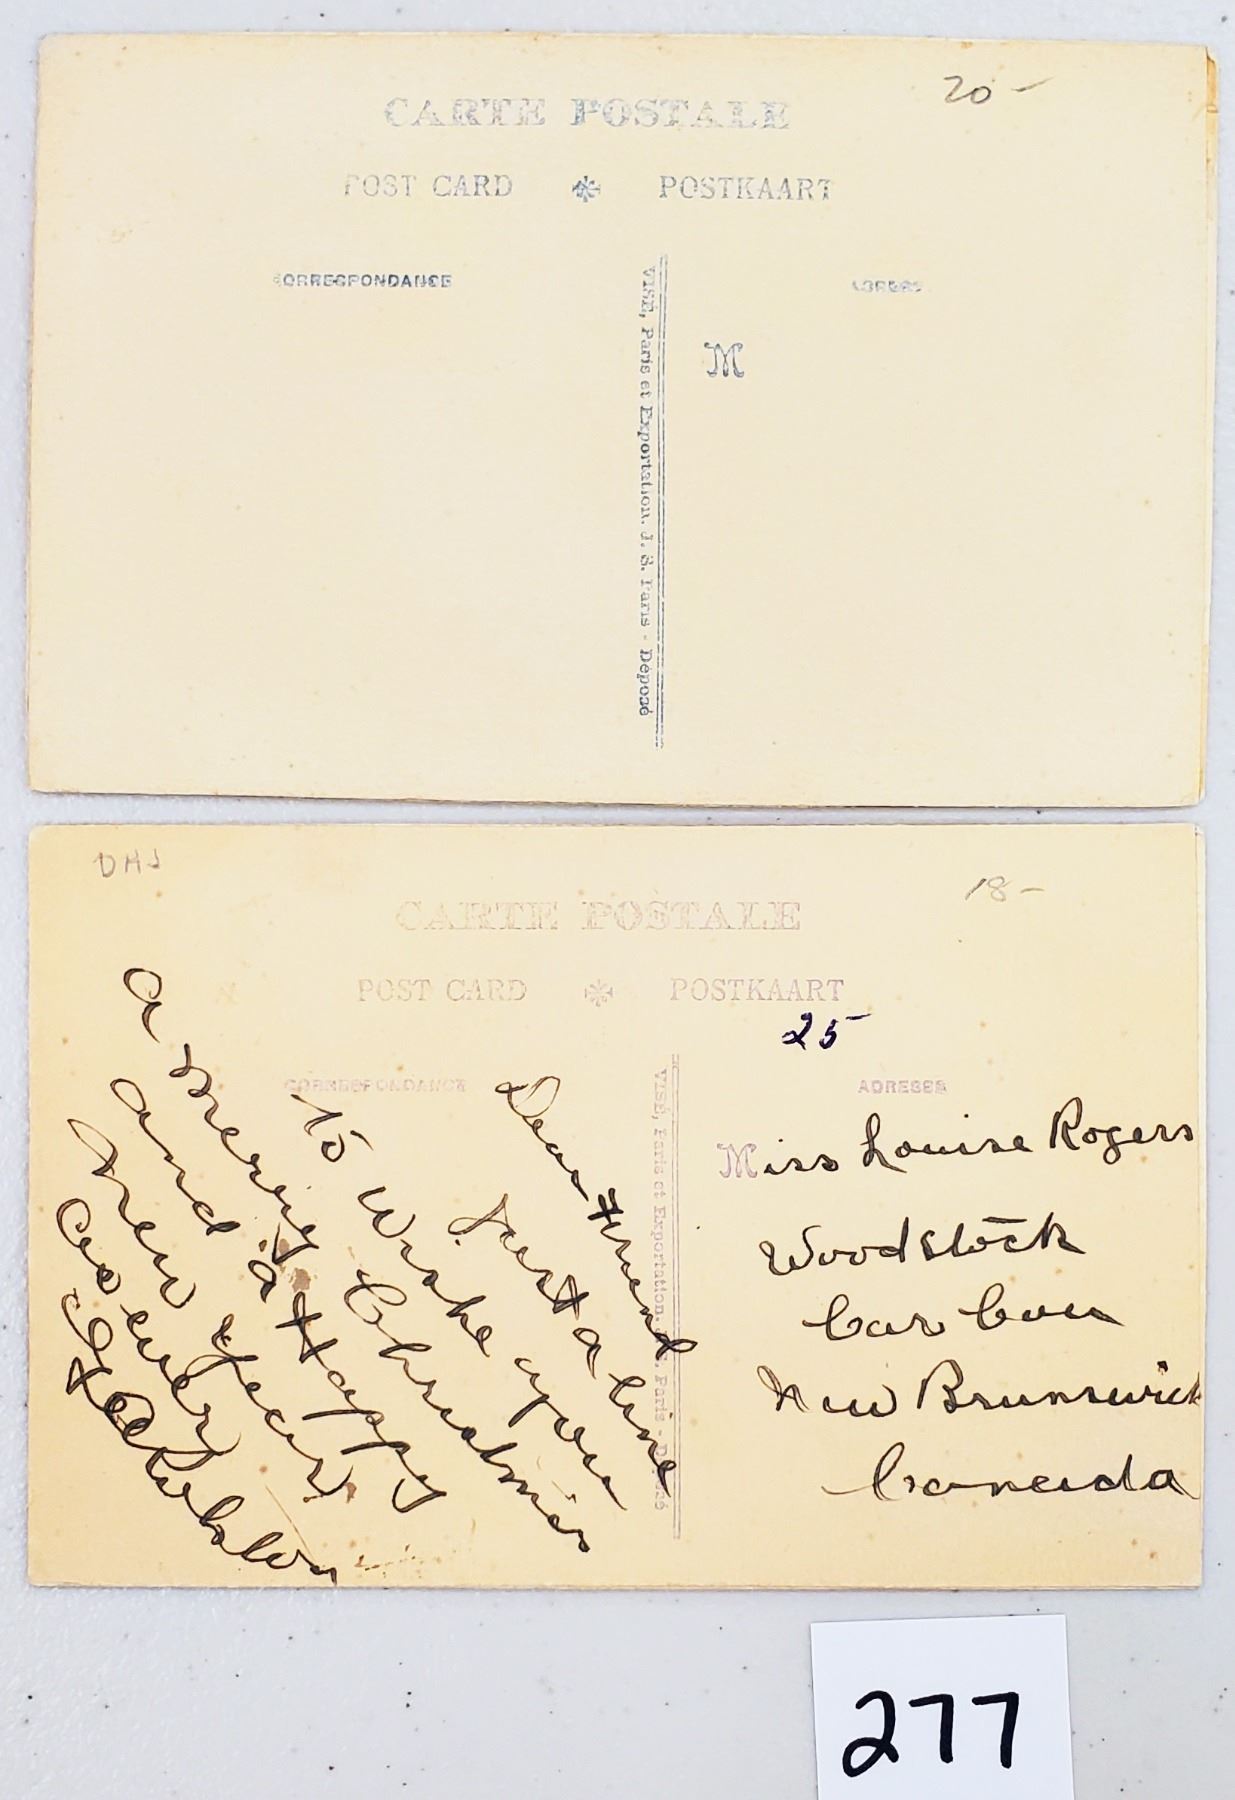 20-
CARTE POSTALE
POST CARD POSTKAART
CORRESPONDANCE
ADRESSE
M
VISÉ, Paris et Exportation. J. S. Paris - Déposé
DHJ
18-
CARTE POSTALE
POST CARD POSTKAART
25-
CORRESPONDANCE
ADRESSE
VISÉ, Paris et Exportation. Paris - Déposé
Dear Friend
Just a line
to Wishe you
a Merry Christmas
and a Happy
New Year
as ever
Miss Louise Rogers
Woodstock
Car Cou
New Brunswick
Canada
277